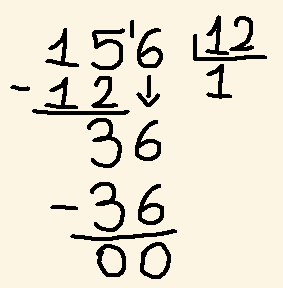 15'6 12
-12↓ 1
36
-36
00